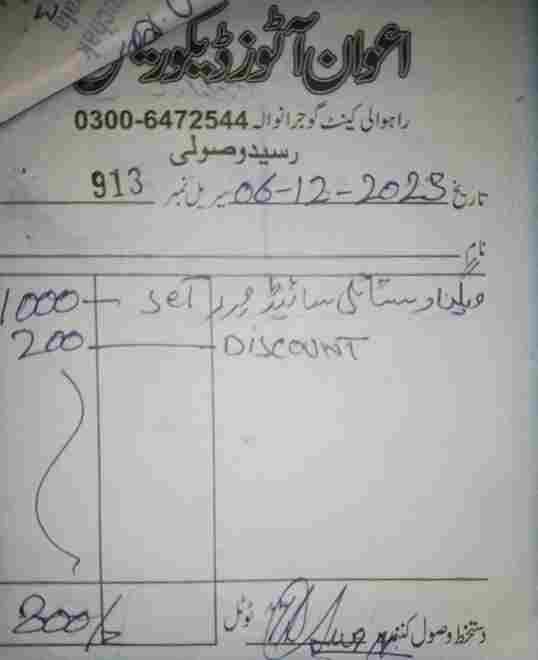 اعوان آٹوز ڈیکوریشن
راہوالی کینٹ گوجرانوالہ 0300-6472544
رسید وصولی
تاریخ 06-12-2023 سیریل نمبر 913
نام
سائیڈ مرر Set 1000
DISCOUNT 200
دستخط وصول کنندہ ٹوٹل 800/-